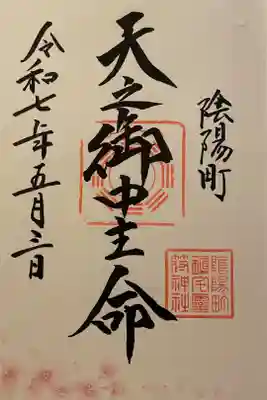 陰陽町
陰陽町
鎮宅靈
符神社
天之御中主命
令和七年五月三日